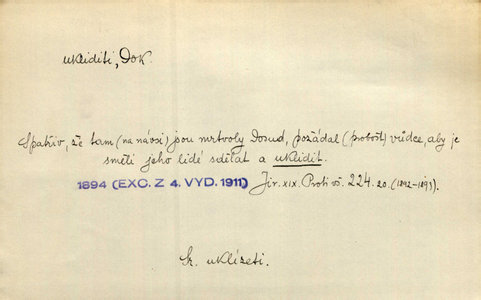 ukliditi, Dok.
Spatřiv, že tam (na návsi) jsou mrtvoly dosud, požádal (probošt) vůdce, aby je
směli jeho lidé sdělat a uklidit.
1894 (EXC. Z 4. VYD. 1911) Jir. XIX. Proti vš. 224. 20. (1892-1893).
Sr. uklízeti.